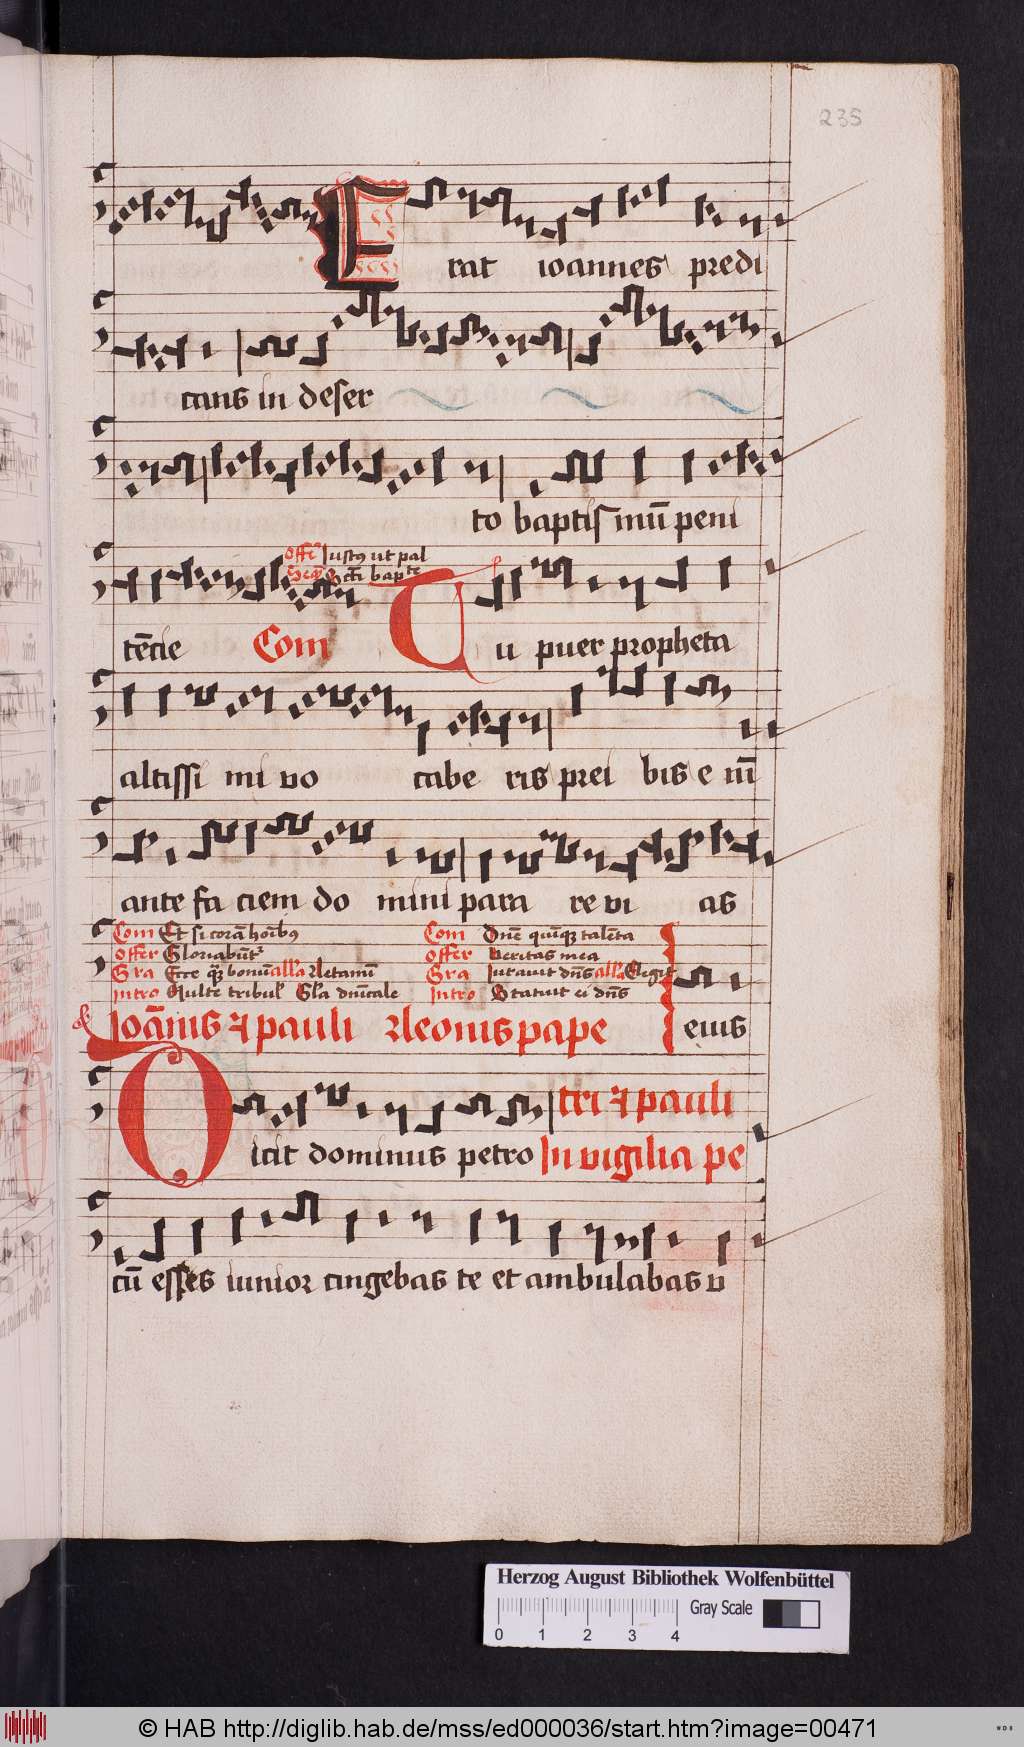 235
Erat ioannes predi
cans in deser
to baptis mū peni
Offe Iustꝰ ut pal
bapte
tēcie Com Tu puer propheta
altissi mi vo cabe ris prei bis e nī
ante fa ciem do mini para re vi as
Com Et si corā hoībꝰ Com Dnē quinqꝫ talēta
Offer Gloriabūtr Offer Veritas mea
Gra Ecce qꝫ bonū alla Letamī Gra Iuravit dns alla Elegit
Intro Multe tribul Gla dnīcale Intro Statuit ei dns
Ioānis ⁊ pauli Leonis pape eius
tri ⁊ pauli
Dicit dominus petro In vigilia pe
cū esses iunior cingebas te et ambulabas u
Herzog August Bibliothek Wolfenbüttel
Gray Scale
0 1 2 3 4
© HAB http://diglib.hab.de/mss/ed000036/start.htm?image=00471